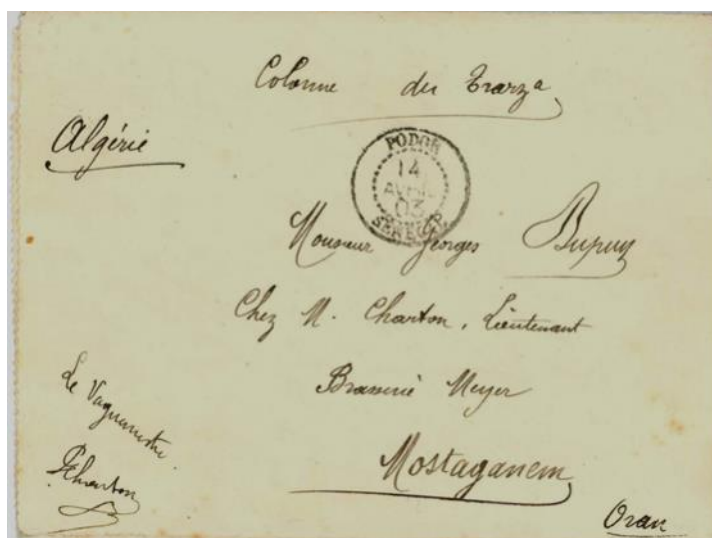 Colonne du Trarza
Algérie
PODOR
14
AVRIL
03
SENEGAL
Monsieur Georges Dupuy
Chez M. Charton, Lieutenant
Brasserie Meyer
Mostaganem
Oran
Le Vaguemestre
Charton